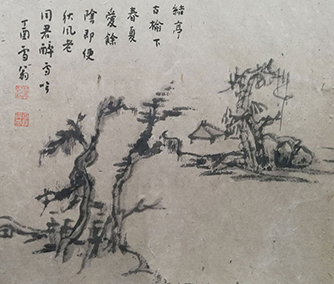 結亭
古榆下
春夏
愛餘
陰即使
秋風老
同君醉雪吟
丁酉雪翁